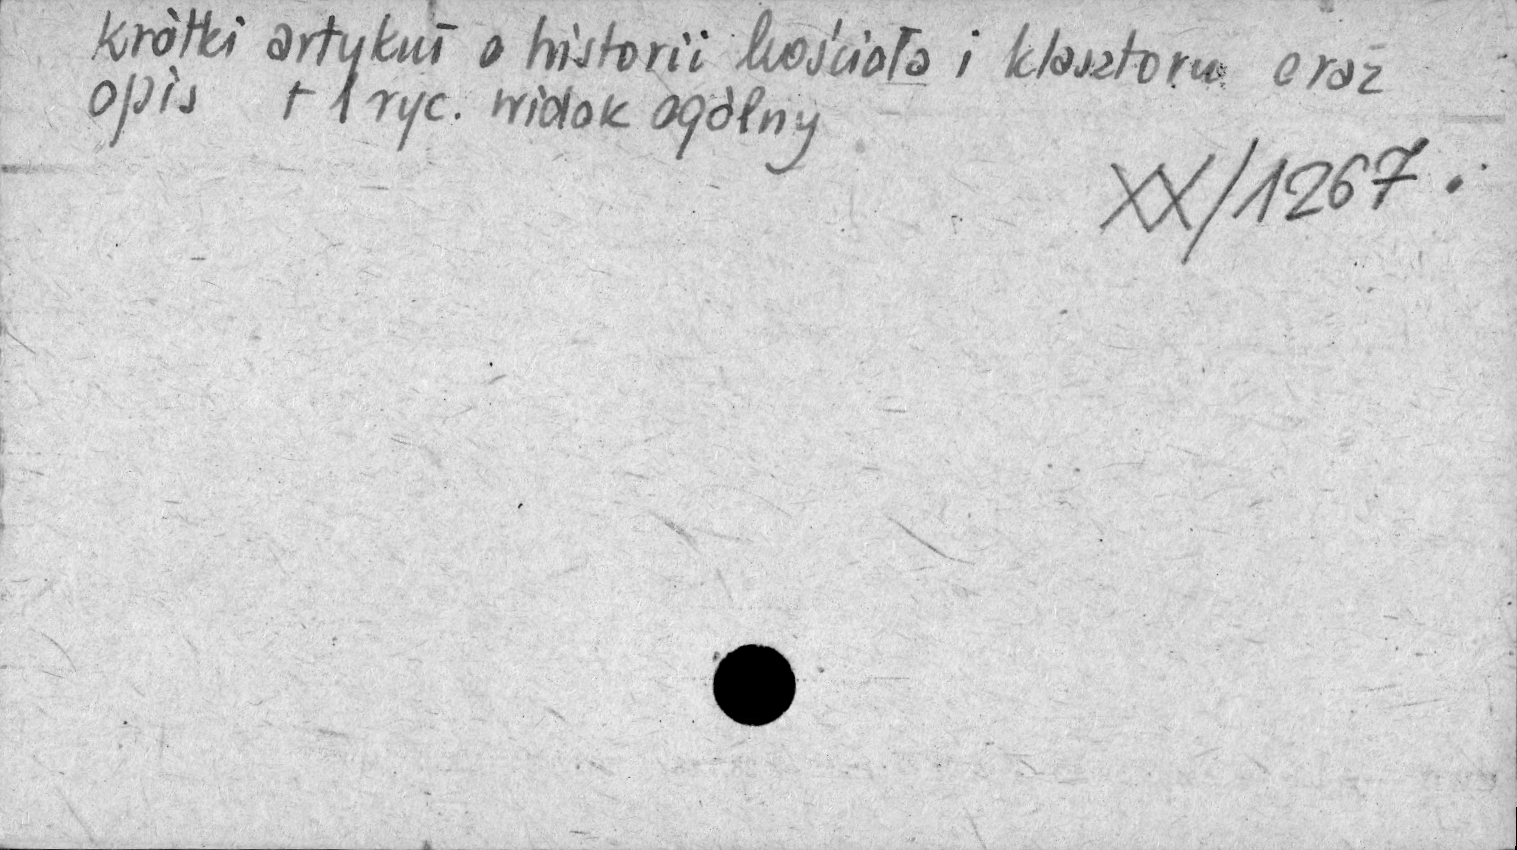 krótki artykuł o historii kościoła i klasztoru oraz
opis + 1 ryc. widok ogólny
XX/1267.